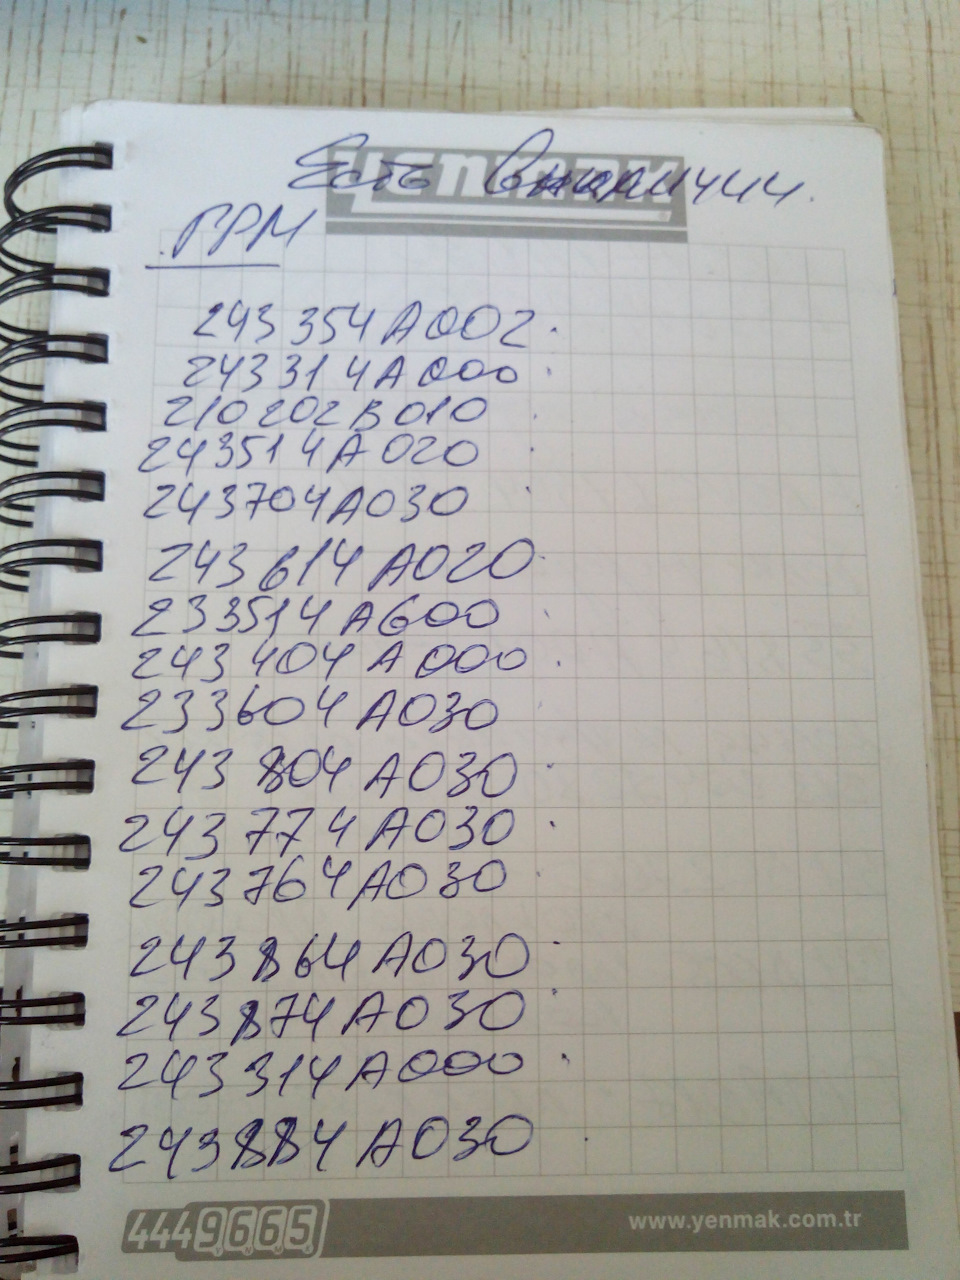 yenmak
Есть в наличии.
ГРМ
243354A002.
243314A000
210202B010
243514A020
243704A030
243614A020
233514A600
243404A000
233604A030
243804A030
243774A030
243764A030
243864A030
243874A030
243314A000
243884A030
4449665
YENMAK
www.yenmak.com.tr